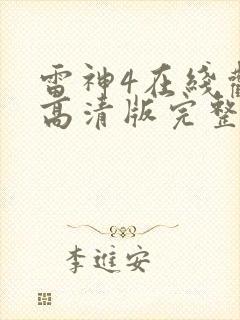 雷神4在线
高清版完整
李進安